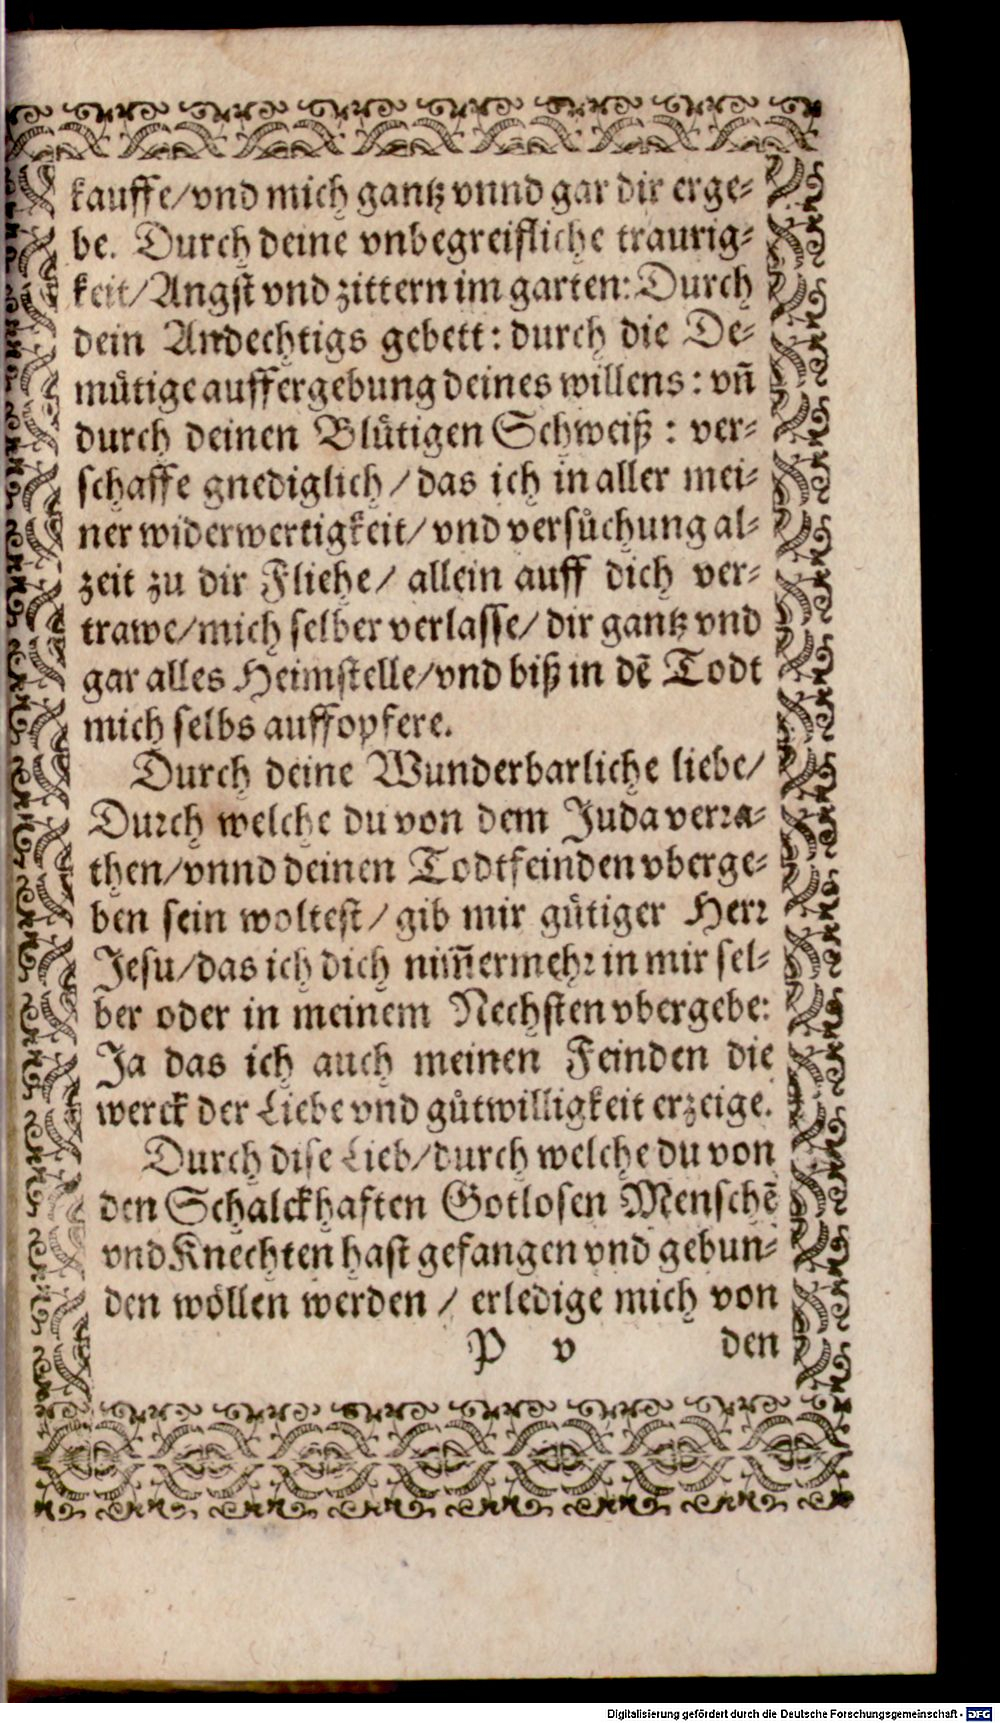 kauffe/vnd mich gantz vnnd gar dir erge⸗
be. Durch deine vnbegreifliche traurig⸗
keit/Angst vnd zittern im garten: Durch
dein Andechtigs gebett: durch die De⸗
muͤtige auffergebung deines willens: vn̄
durch deinen Bluͤtigen Schweiß: ver⸗
schaffe gnediglich/das ich in aller mei⸗
ner widerwertigkeit/vnd versuͦchung al⸗
zeit zu dir Fliehe/ allein auff dich ver⸗
trawe/mich selber verlasse/dir gantz vnd
gar alles Heimstelle/vnd biß in dē Todt
mich selbs auffopfere.
Durch deine Wunderbarliche liebe/
Durch welche du von dem Juda verra⸗
then/vnnd deinen Todtfeinden vberge⸗
ben sein woltest/gib mir guͤtiger Herr
Jesu/das ich dich nim̄ermehr in mir sel⸗
ber oder in meinem Nechsten vbergebe:
Ja das ich auch meinen Feinden die
werck der Liebe vnd guͤtwilligkeit erzeige.
Durch dise Lieb/durch welche du von
den Schalckhaften Gotlosen Menschē
vnd Knechten hast gefangen vnd gebun⸗
den woͤllen werden/ erledige mich von
P v den
Digitalisierung gefördert durch die Deutsche Forschungsgemeinschaft - DFG